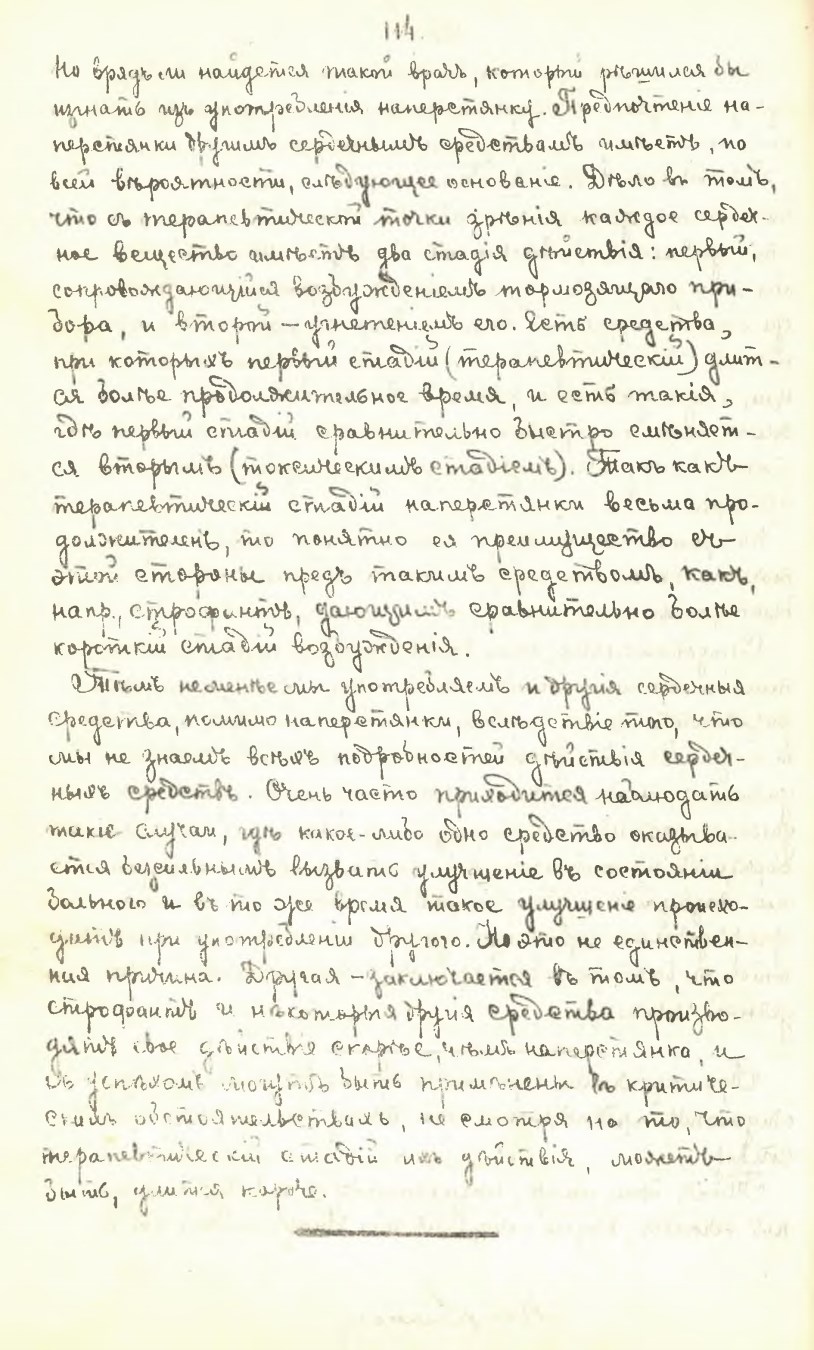 114.
Но врядъ ли найдется такой врачъ, который рѣшился бы
изгнать изъ употребленія наперстянку. Предпочтеніе на-
перстянки другимъ сердечнымъ средствамъ имѣетъ, по
всей вѣроятности, слѣдующее основаніе. Дѣло въ томъ,
что съ терапевтической точки зрѣнія каждое сердеч-
ное вещество имѣетъ два стадія дѣйствія: первый,
сопровождающійся возбужденіемъ тормозящаго при-
бора, и второй – угнетеніемъ его. Есть средства,
при которыхъ первый стадій (терапевтическій) длит-
ся болѣе продолжительное время, и есть такія,
гдѣ первый стадій сравнительно быстро смѣняет-
ся вторымъ (токсическимъ стадіемъ). Такъ какъ
терапевтическій стадій наперстянки весьма про-
должителенъ, то понятно ея преимущество съ
этой стороны предъ такимъ средствомъ, какъ,
напр., строфантъ, дающимъ сравнительно болѣе
короткій стадій возбужденія.
Тѣмъ не менѣе мы употребляемъ и другія сердечныя
средства, помимо наперстянки, вслѣдствіе того, что
мы не знаемъ всѣхъ подробностей дѣйствія сердеч-
ныхъ средствъ. Очень часто приходится наблюдать
такіе случаи, гдѣ какое-либо одно средство оказыва-
ется безсильнымъ вызвать улучшеніе въ состояніи
больного и въ то же время такое улучшеніе происхо-
дитъ при употребленіи другого. Но это не единствен-
ная причина. Другая – заключается въ томъ, что
строфантъ и нѣкоторыя другія средства произво-
дятъ свое дѣйствіе скорѣе, чѣмъ наперстянка, и
съ успѣхомъ могутъ быть примѣнены въ критиче-
скихъ обстоятельствахъ, не смотря на то, что
терапевтическій стадій ихъ дѣйствія, можетъ
быть, длится короче.